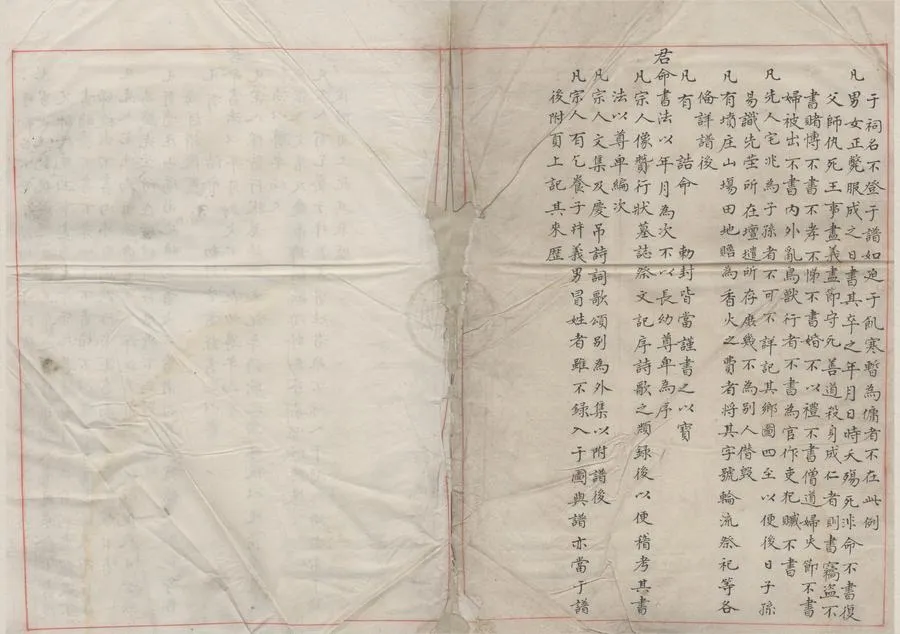 于祠名不登于譜如迫于飢寒暫為傭者不在此例
凡男女正斃服成之日書其卒之年月日時夭殤死非命不書復
父師仇死王事盡義盡節守死善道殺身成仁者則書竊盜不
書賭博不書不孝不悌不書婚不以禮不書僧道婦失節不書
婦被出不書內外亂鳥獸行者不書為官作吏犯贓不書
凡先人宅兆為子孫者不可不詳記其鄉圖四至以便後日子孫
易識先塋所在壇壝所存庶幾不為別人僭毀
凡有墳庄山塲田地贍為香火之費者將其字號輪流祭祀等各
俻詳譜後
凡有 誥命 勅封皆當謹書之以寶
君命書法以年月為次不以長幼尊卑為序
凡宗人像贊行狀墓誌祭文記序詩歌之類録後以便稽考其書
法以尊卑編次
凡宗人文集及慶吊詩詞歌頌別為外集以附譜後
凡宗人有乞養子并義男冒姓者雖不録入于圖與譜亦當于譜
後附頁上記其来歷